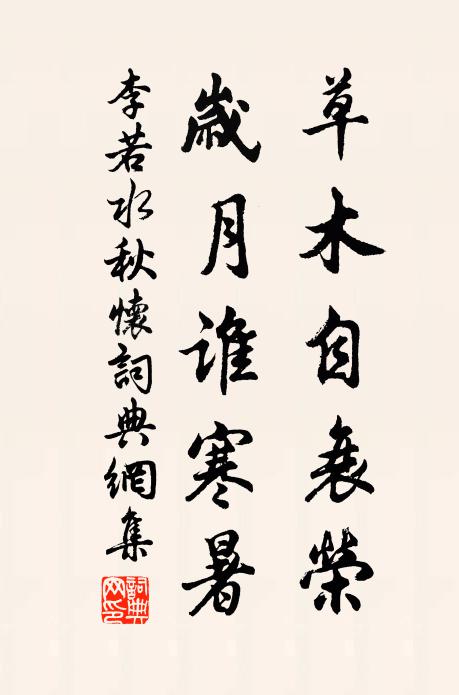 草木自衰榮
歲月誰寒暑
李若水秋懷詞典網集
詞典網印